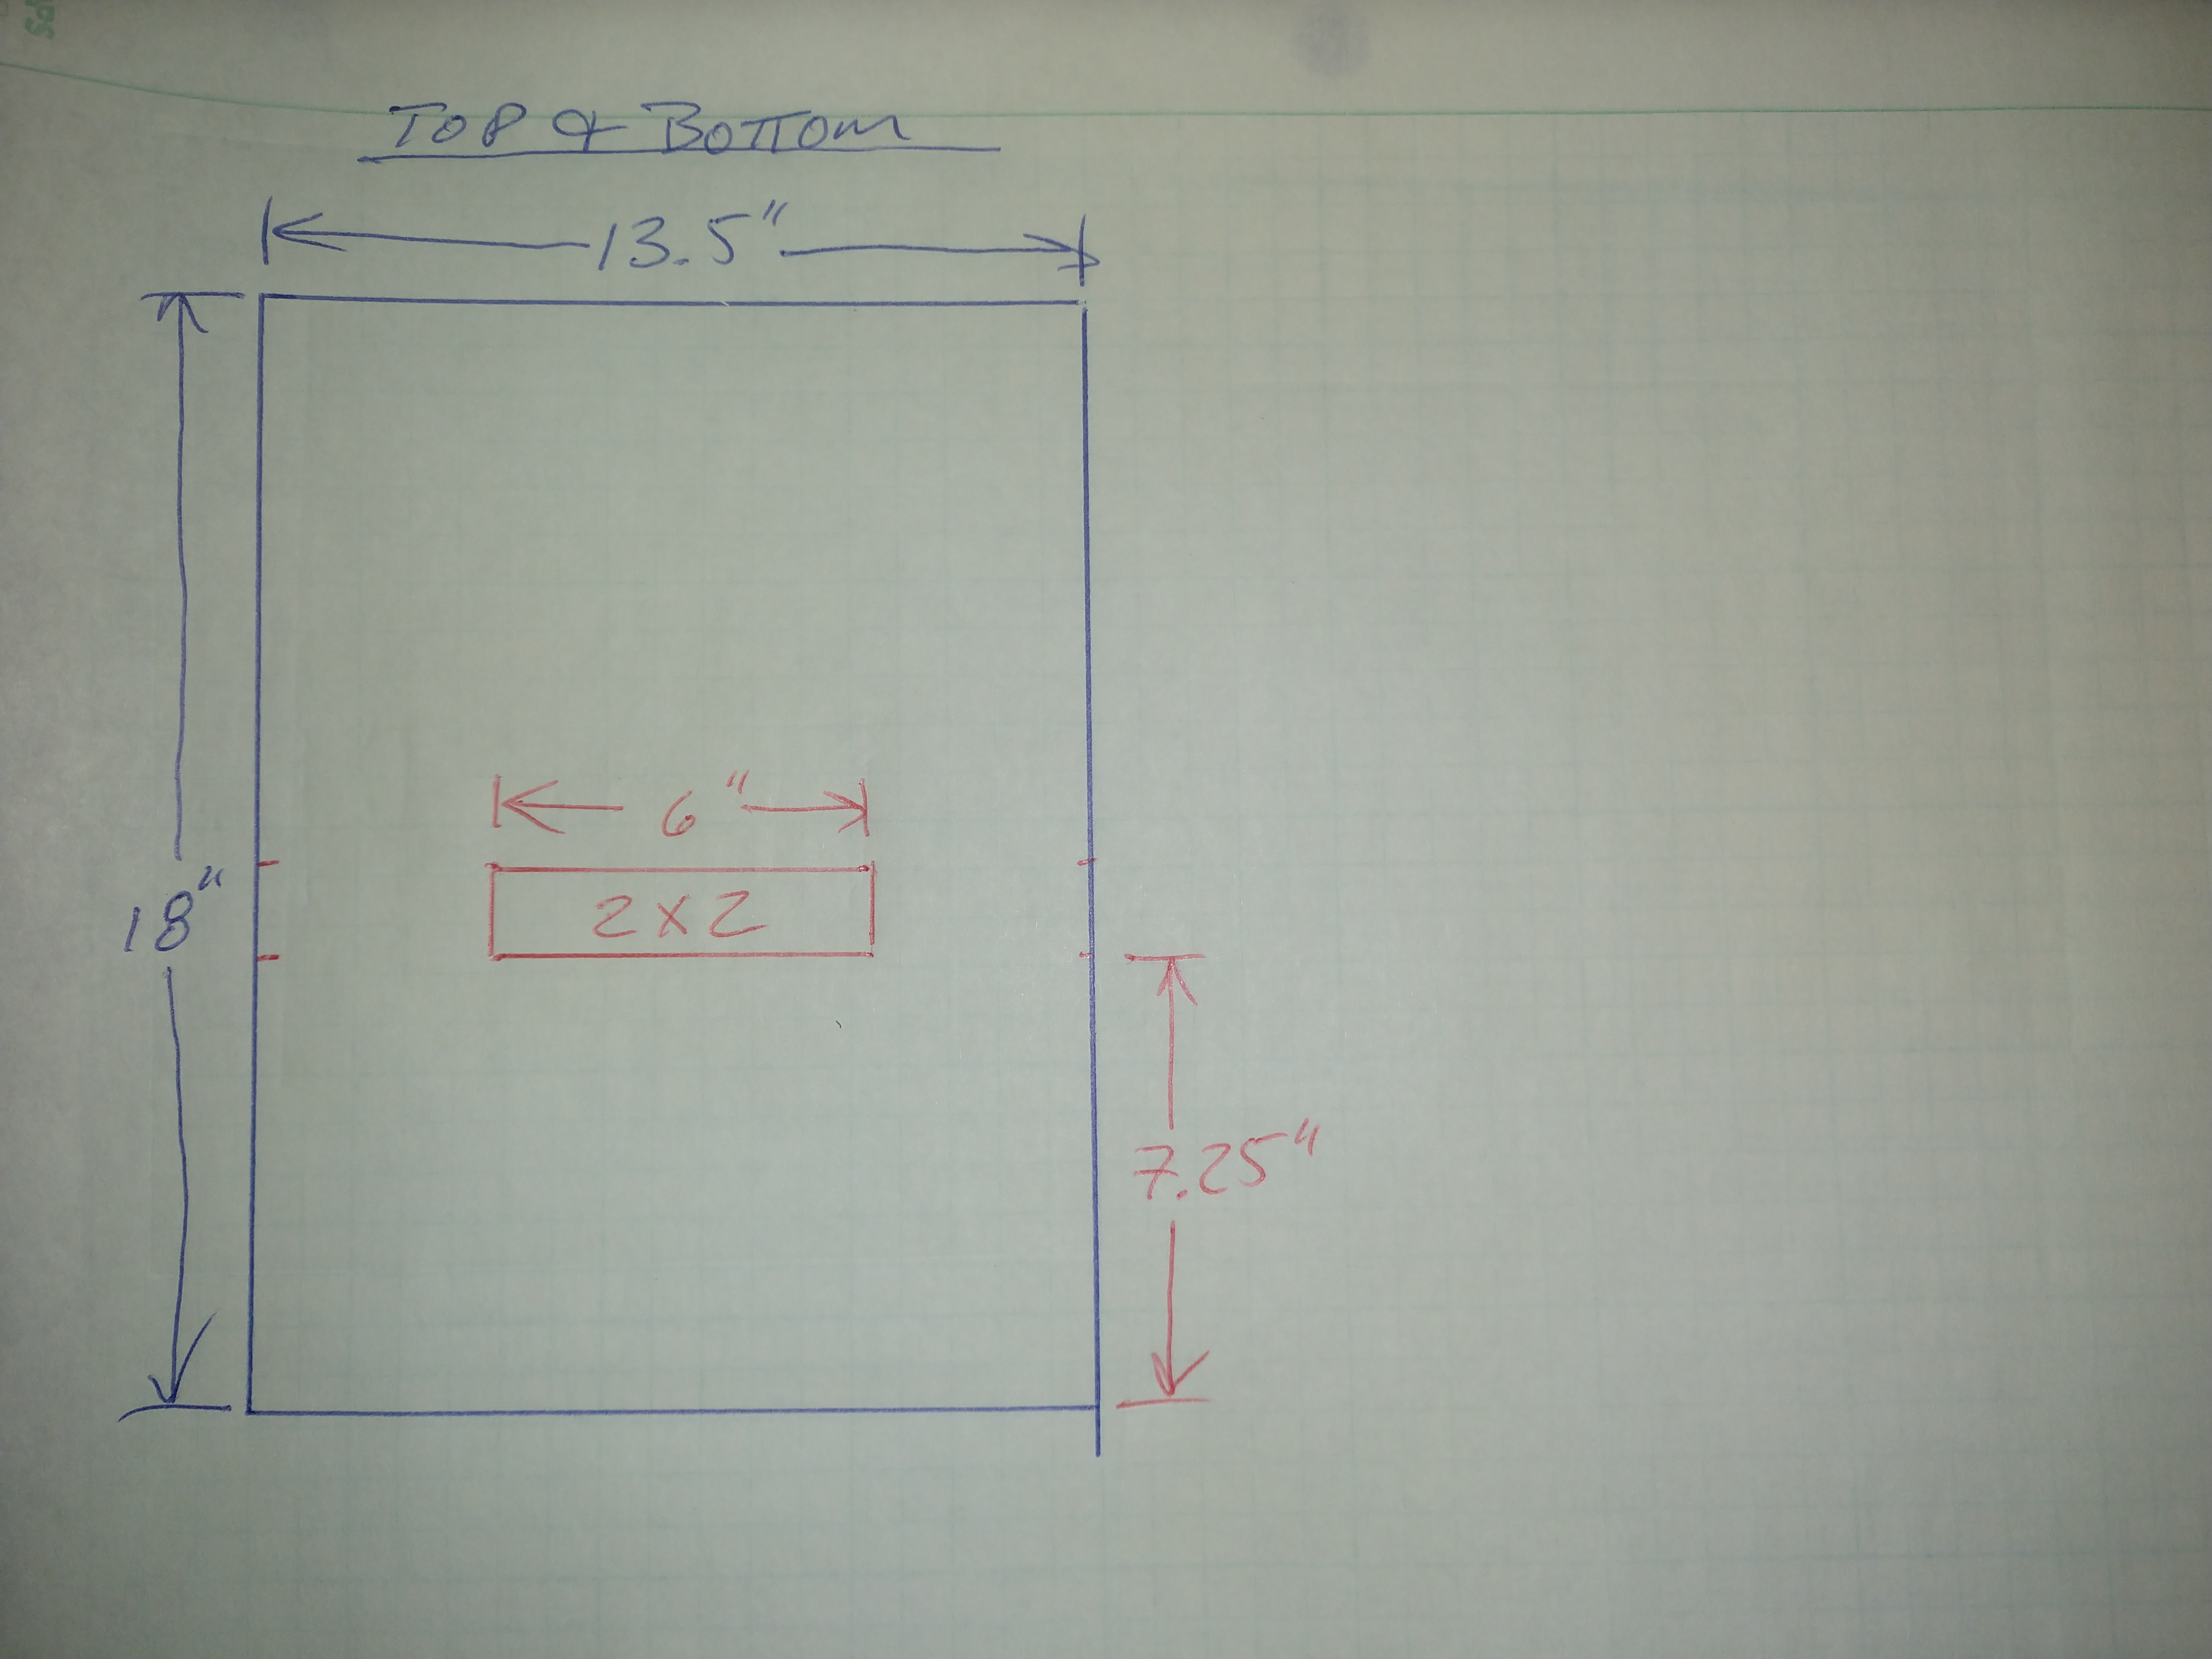 Top & Bottom
13.5"
18"
6"
2x2
7.25"